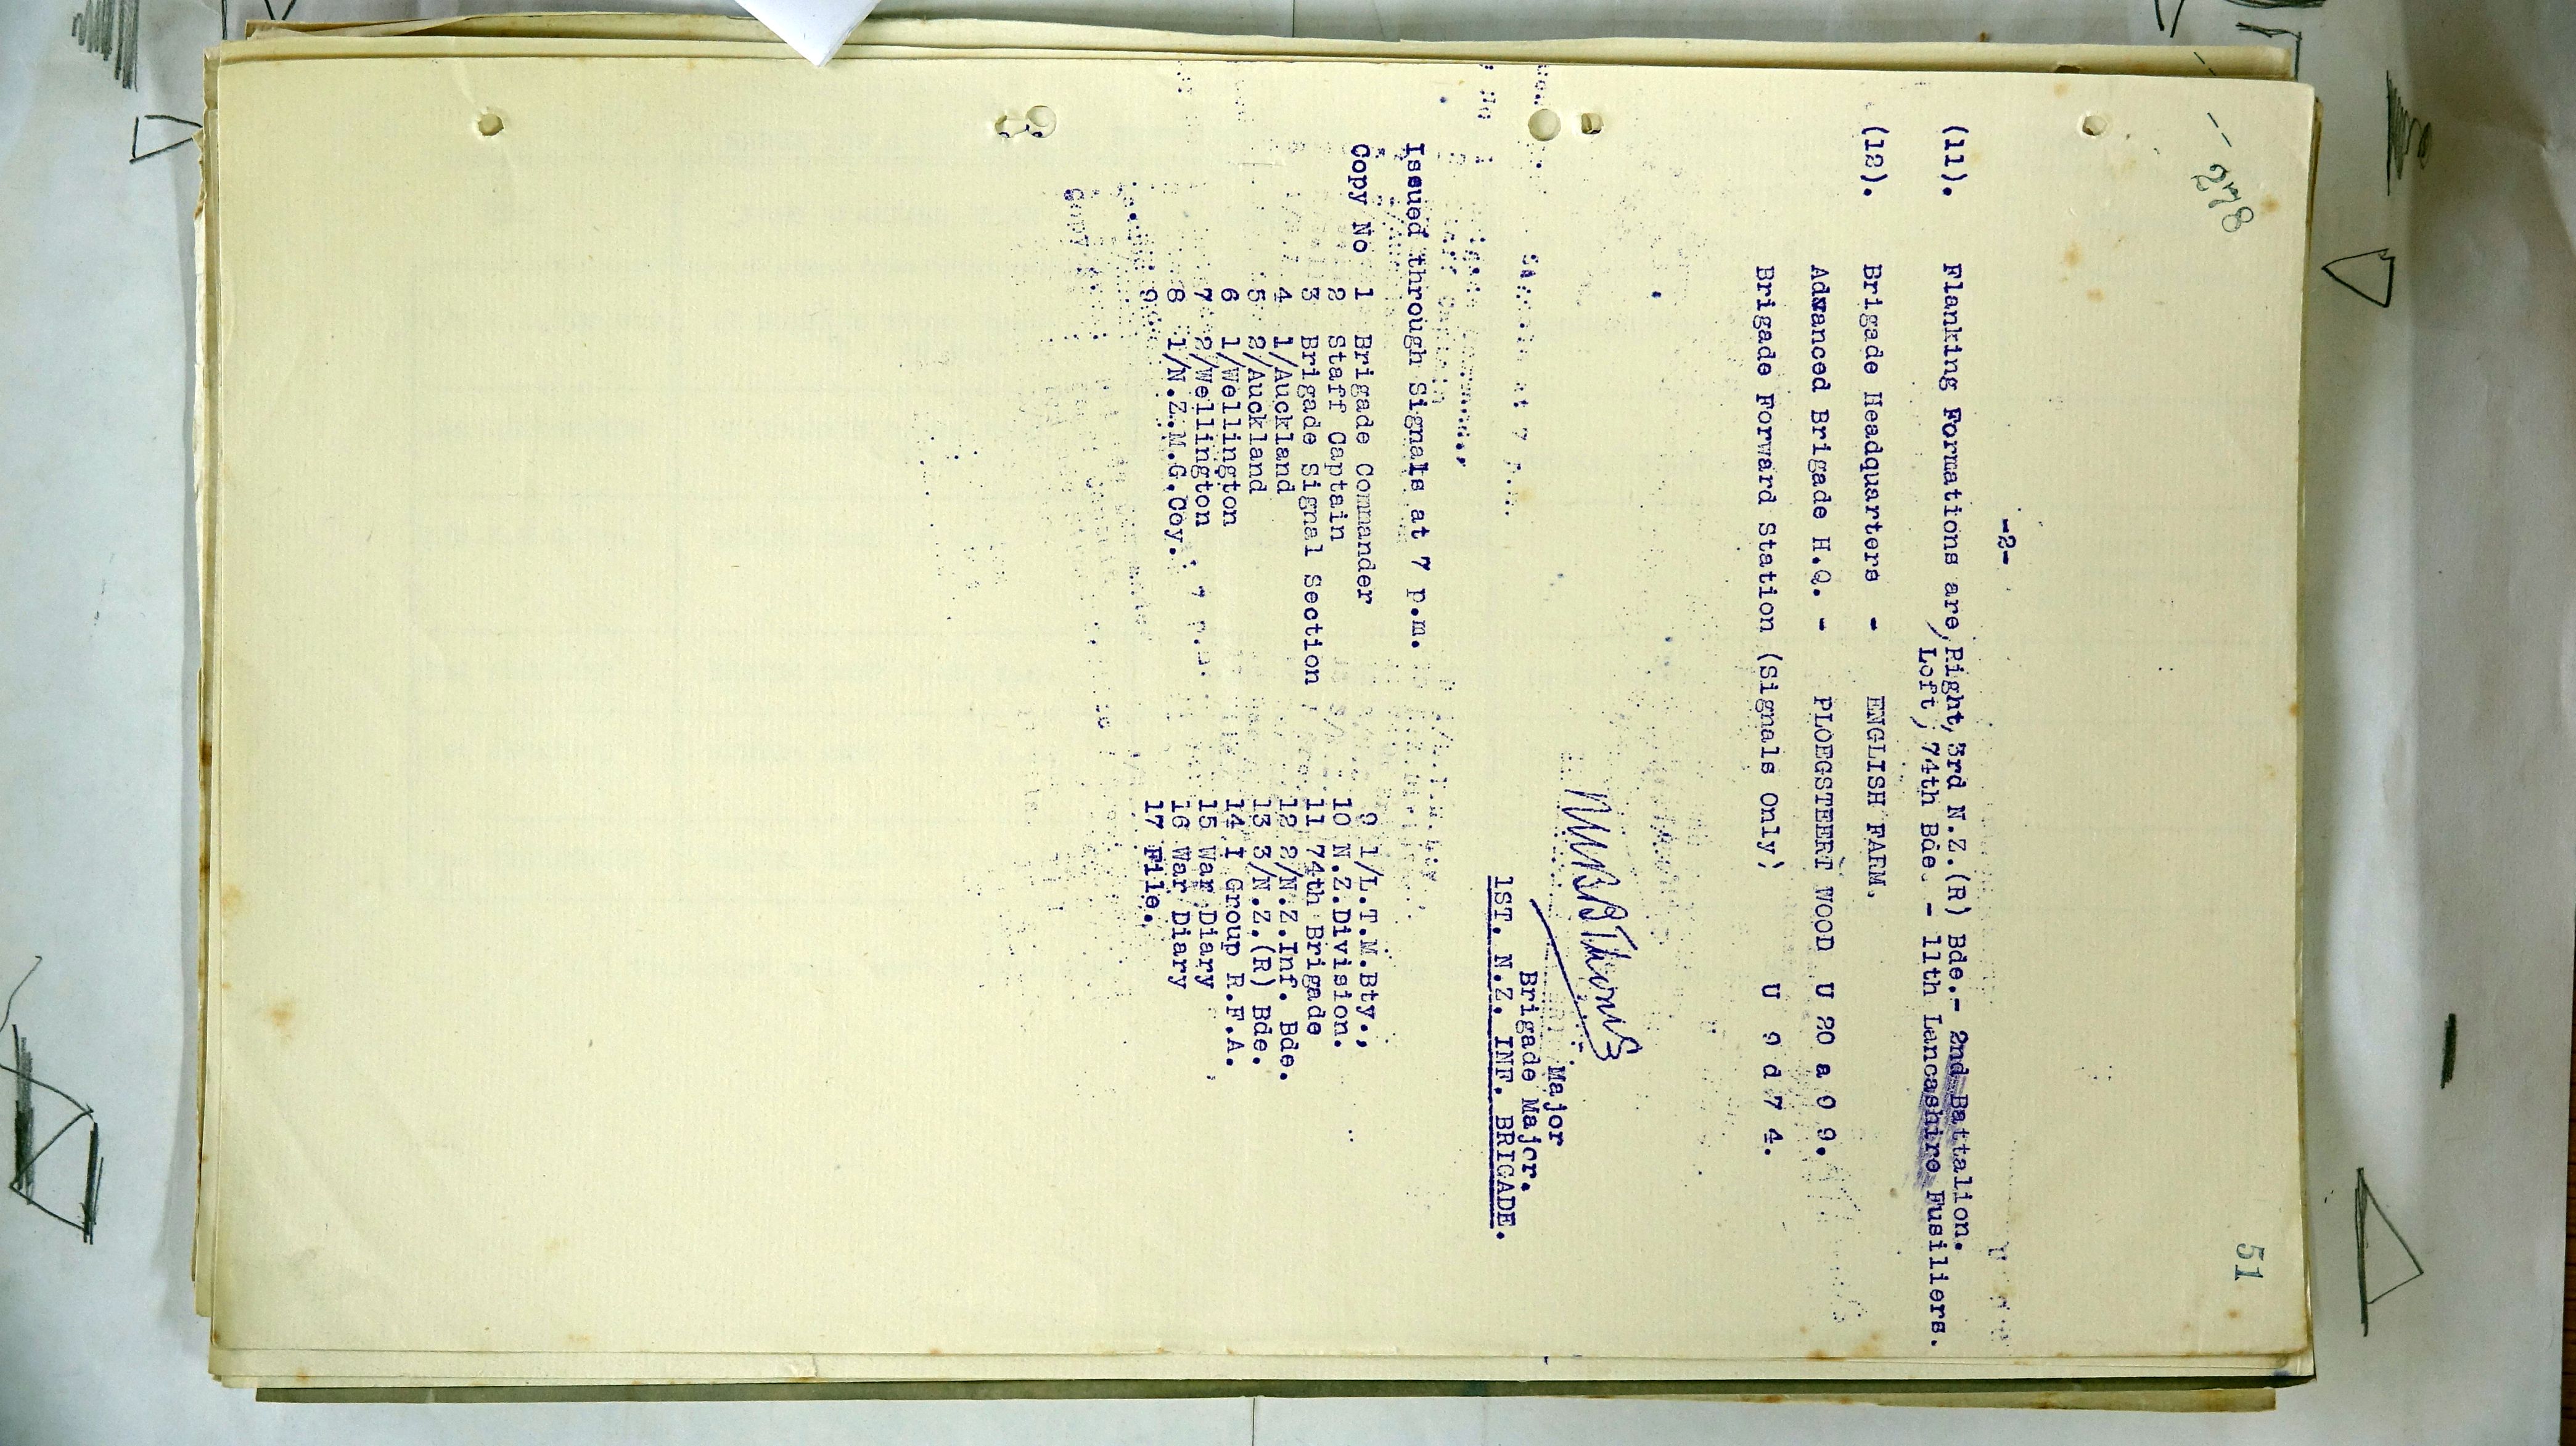 278
51
-2-
(11). Flanking Formations are, Right, 3rd N.Z.(R) Bde.- 2nd Battalion.
Left, 74th Bde. - 11th Lancashire Fusiliers.
(12). Brigade Headquarters - ENGLISH FARM.
Advanced Brigade H.Q. - PLOEGSTEERT WOOD U 20 a 9 9.
Brigade Forward Station (Signals Only) U 9 d 7 4.
Major
Brigade Major.
1ST. N.Z. INF. BRIGADE.
Issued through Signals at 7 p.m.
Copy No 1 Brigade Commander 9 1/L.T.M.Bty.,
2 Staff Captain 10 N.Z.Division.
3 Brigade Signal Section 11 74th Brigade
4 1/Auckland 12 2/N.Z.Inf. Bde.
5 2/Auckland 13 3/N.Z.(R) Bde.
6 1/Wellington 14 I Group R.F.A.
7 2/Wellington 15 War Diary
8 1/N.Z.M.G.Coy. 16 War Diary
17 File.